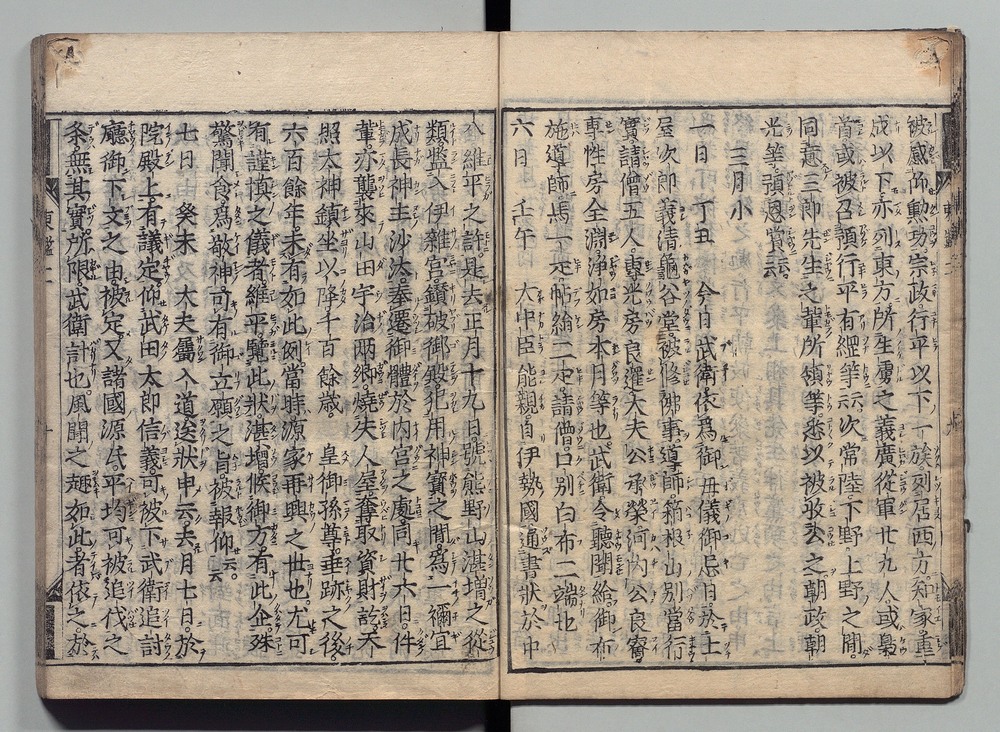 被感仰勲功宗政行平以下一族列居西方知家重
成以下亦列東方所生虜之義廣從軍廿九人或梟
首或被召預行平有經等云云次常陸下野上野之間
同意三郎先生之輩所領等悉以被收公之朝政朝
光等預恩賞云云
三月小
一日 丁丑 今日武衛依爲御母儀御忌日於土
屋次郎義清龜谷堂被修佛事導師箱根山別當行
實請僧五人專光房良暹大夫公承榮河内公良寳
專性房全淵淨如房本月等也武衛令聽聞給御布
施導師馬一疋帖絹二疋請僧口別白布二端也
六日 壬午 大中臣能親自伊勢國通書状於中
八維平之許是去正月十九日號熊野山湛増之從
類濫入伊雜宮鑚破御殿犯用神寳之間爲一禰宜
成長神主沙汰奉遷御體於内宮之處同廿六日件
輩亦襲來山田宇治兩郷燒失人屋奪取資財訖天
照太神鎮坐以降千百餘歳 皇御孫尊垂跡之後
六百餘年未有如此例當時源家再興之世也尤可
有謹慎之儀者維平覽此状湛增候御方有此企殊
驚聞食爲敬神可有御立願之旨被報仰云云
七日 癸未 大夫屬入道送状申云去月七日於
院殿上有議定仰武田太郎信義可被下武衛追討
廳御下文之由被定又諸國源氏平均可被追伐之
条無其實所限武衛計也風聞之趣如此者依之於
東鑑二
十